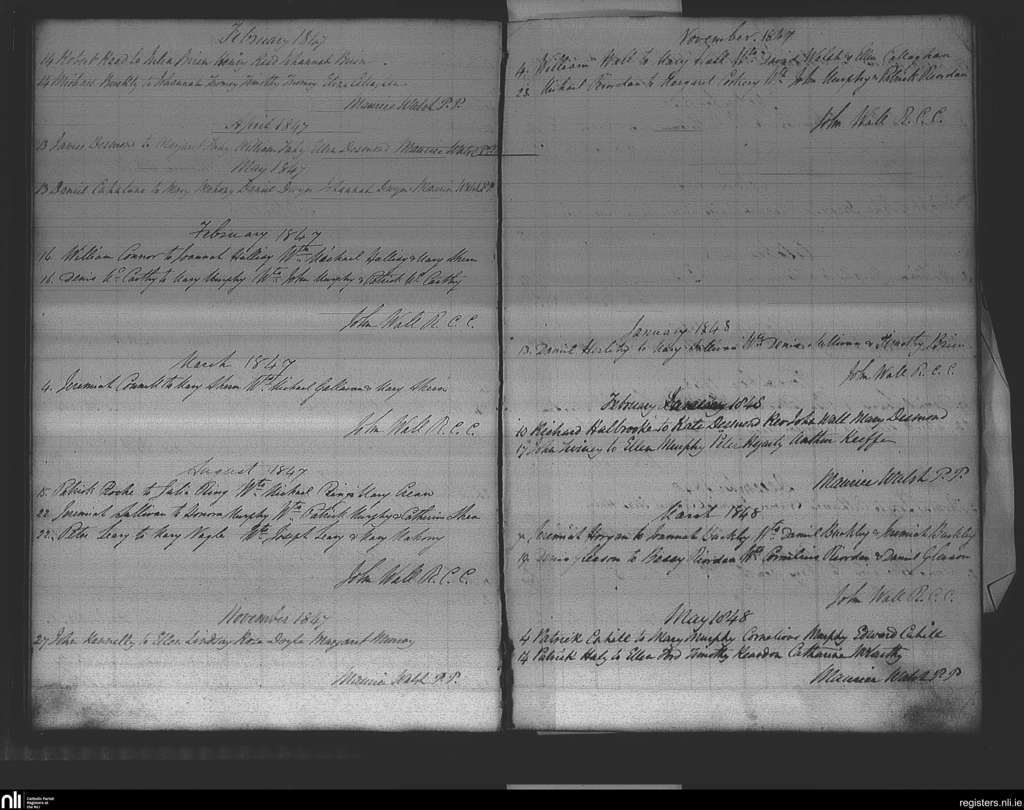 February 1847
14 Robert Reed to Julia Brien Henry Reed Johannah Brien
14 Michael Buckly to Johannah Twomey Timothy Twomey Eliza
Maurice Walsh P.P.
April 1847
13 James Desmond to Margaret William Ellen Desmond Maurice Walsh P.P.
May 1847
13 Daniel Cahalane to Mary Mahony Daniel Dwyer Johannah Dwyer Maurice Walsh P.P.
February 1847
16. William Connor to Joannah Hallisy Wts. Michael Hallisy & Mary Shea
16. Denis McCarthy to Mary Murphy Wts. John Murphy & Patrick McCarthy
John Wall R.C.C.
March 1847
4. Jeremiah to Mary Sheen Wts. Michael & Mary Sheen
John Wall R.C.C.
August 1847
15. Patrick Roche to Julia Ring Wts. Michael Ring & Mary Crean
22. Jeremiah Sullivan to Honora Murphy Wts. Patrick Murphy & Catherine Shea
22. Peter Leary to Mary Nagle Wts. Joseph Leary & Mary Mahony
John Wall R.C.C.
November 1847
27 John Kennelly to Ellen Lindsay Rosa Doyle Margaret Murray
Maurice Walsh P.P.
November. 1847
4. William Wall to Mary Wall Wts. David Walsh & Ellen Callaghan
23. Michael Riordan to Margaret Wts. John Murphy & Patrick Riordan
John Wall R.C.C.
January 1848
18. Daniel Herlihy to Mary Sullivan Wts. Denis Sullivan & Timothy Brien
John Wall R.C.C.
February January 1848
10 Richard Halbrooke to Kate Desmond Revd John Wall Mary Desmond
17 John to Ellen Murphy Peter Hegarty Arthur Keeffe
Maurice Walsh P.P.
March 1848
Jeremiah Horgan to Joannah Buckley Wts. Daniel Buckley & Jeremiah Buckley
19. Denis Gleason to Bessy Riordan Wts. Cornelius Riordan & Daniel Gleason
John Wall R.C.C.
May 1848
4 Patrick Cahill to Mary Murphy Cornelious Murphy Edward Cahill
14 Patrick Haly to Ellen Ford Timothy Reardon Catharine McCarthy
Maurice Walsh P.P.
nli
Catholic Parish
Registers at
the NLI
registers.nli.ie